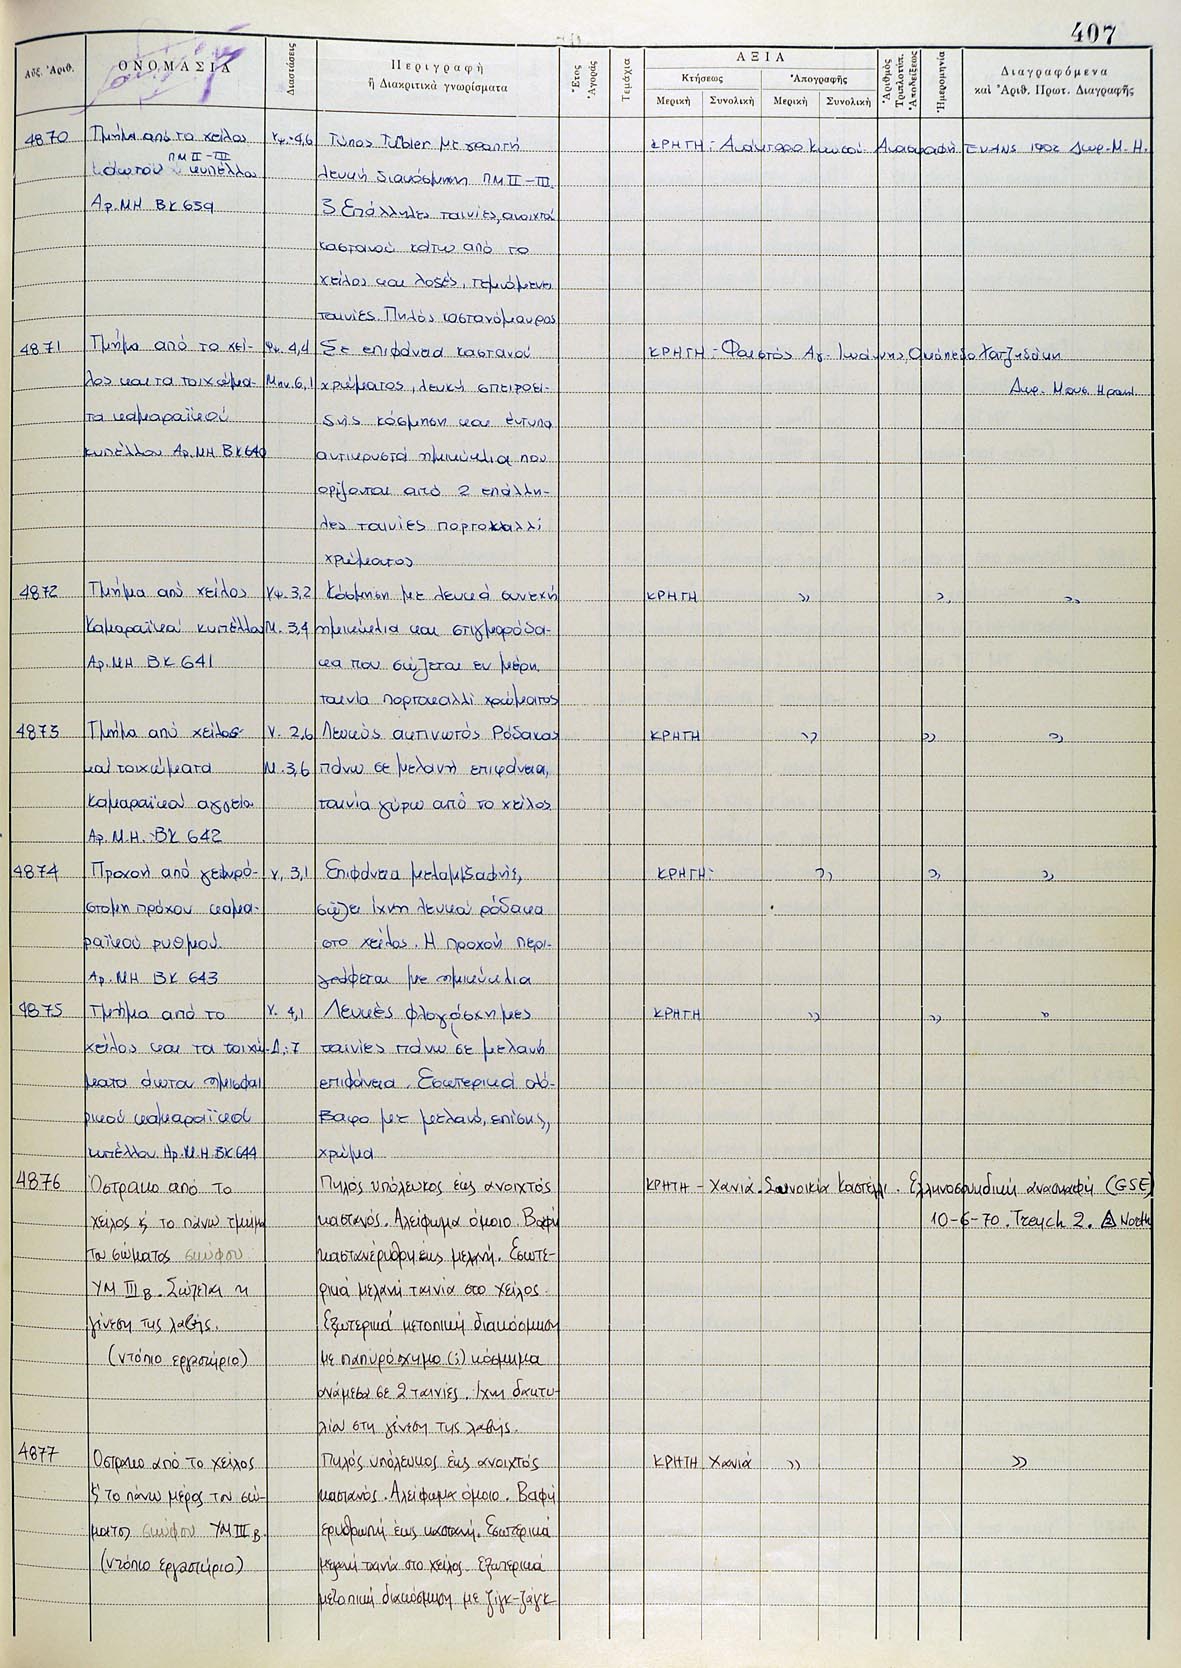 407
Αὔξ. Ἀριθ.
ΟΝΟΜΑΣΙΑ
Διαστάσεις
Περιγραφὴ
ἢ Διακριτικὰ γνωρίσματα
Ἔτος Ἀγορᾶς
Τεμάχια
ΑΞΙΑ
Κτήσεως
Ἀπογραφῆς
Μερική Συνολική Μερική Συνολική
Ἀριθμὸς Τριπλοτύπ. Ἀποδείξεως
Ἡμερομηνία
Διαγραφόμενα
καὶ Ἀριθ. Πρωτ. Διαγραφῆς
4870
Τμήμα από το χείλος
ΠΜ ΙΙ-ΙΙΙ
κυπέλλου
Αρ. ΜΗ ΒΚ 639
Υψ. 4,6
Τύπος Tubler με γραπτή
λευκή διακόσμηση ΠΜ ΙΙ-ΙΙΙ.
3 Επάλληλες ταινίες, ανοιχτού
καστανού κάτω από το
χείλος και λοξές, τεμνόμενες
ταινίες. Πηλός καστανόμαυρος
ΚΡΗΤΗ: Ανάκτορο Κνωσού. Ανασκαφή EVANS 1902 Δωρ. Μ. Η.
4871
Τμήμα από το χεί-
λος και τα τοιχώμα-
τα καμαραϊκού
κυπέλλου Αρ. ΜΗ ΒΚ 640
Υψ. 4,4
Μηκ. 6,1
Σε επιφάνεια καστανού
χρώματος, λευκή σπειροει-
δής κόσμηση και έντυπα
αντικρυστά ημικύκλια που
ορίζονται από 2 επάλλη-
λες ταινίες πορτοκαλλί
χρώματος
ΚΡΗΤΗ: Φαιστός Αγ. Ιωάννης, Οικόπεδο Χατζηδάκη
Δωρ. Μουσ. Ηρακλ.
4872
Τμήμα από χείλος
Καμαραϊκού κυπέλλου
Αρ. ΜΗ ΒΚ 641
Υψ. 3,2
Μ. 3,4
Κόσμηση με λευκά συνεχή
ημικύκλια και στιγμορόδα-
κα που σώζεται εν μέρει
ταινία πορτοκαλλί χρώματος
ΚΡΗΤΗ » » »
4873
Τμήμα από χείλος
και τοιχώματα
Καμαραϊκού αγγείου
Αρ. Μ.Η. ΒΚ 642
Υ. 2,6
Μ. 3,6
Λευκός ακτινωτός Ρόδακας
πάνω σε μελανή επιφάνεια,
ταινία γύρω από το χείλος
ΚΡΗΤΗ » » »
4874
Προχοή από γεφυρό-
στομη πρόχου καμα-
ραϊκού ρυθμού.
Αρ. ΜΗ ΒΚ 643
Υ. 3,1
Επιφάνεια μελαμβαφής,
σώζει ίχνη λευκού ρόδακα
στο χείλος. Η προχοή περι-
γράφεται με ημικύκλια
ΚΡΗΤΗ: » » »
4875
Τμήμα από το
χείλος και τα τοιχώ-
ματα άωτου ημισφαι
ρικού καμαραϊκού
κυπέλλου. Αρ. Μ.Η. ΒΚ 644
Υ. 4,1
Δ.: 7
Λευκές φλογόσχημες
ταινίες πάνω σε μελανή
επιφάνεια. Εσωτερικά ολό-
βαφο με μελανό, επίσης,
χρώμα
ΚΡΗΤΗ » » »
4876
Όστρακο από το
χείλος & το πάνω τμήμα
του σώματος σκύφου
ΥΜ ΙΙΙ Β. Σώζεται η
γένεση της λαβής.
(ντόπιο εργαστήριο)
Πηλός υπόλευκος έως ανοιχτός
καστανός. Αλείφωμα όμοιο. Βαφή
καστανέρυθρη έως μελανή. Εσωτε-
ρικά μελανή ταινία στο χείλος.
Εξωτερικά μετοπική διακόσμηση
με παπυρόσχημο (;) κόσμημα
ανάμεσα σε 2 ταινίες. Ίχνη δακτυ-
λίου στη γένεση της λαβής.
ΚΡΗΤΗ - Χανιά. Συνοικία Καστέλλι. Ελληνοσουηδική ανασκαφή (GSE)
10-6-70. Trench 2. North
4877
Όστρακο από το χείλος
& το πάνω μέρος του σώ-
ματος σκύφου ΥΜ ΙΙΙ Β.
(ντόπιο εργαστήριο)
Πηλός υπόλευκος έως ανοιχτός
καστανός. Αλείφωμα όμοιο. Βαφή
ερυθρωπή έως καστανή. Εσωτερικά
μελανή ταινία στο χείλος. Εξωτερικά
μετοπική διακόσμηση με ζιγκ-ζαγκ
ΚΡΗΤΗ Χανιά » »